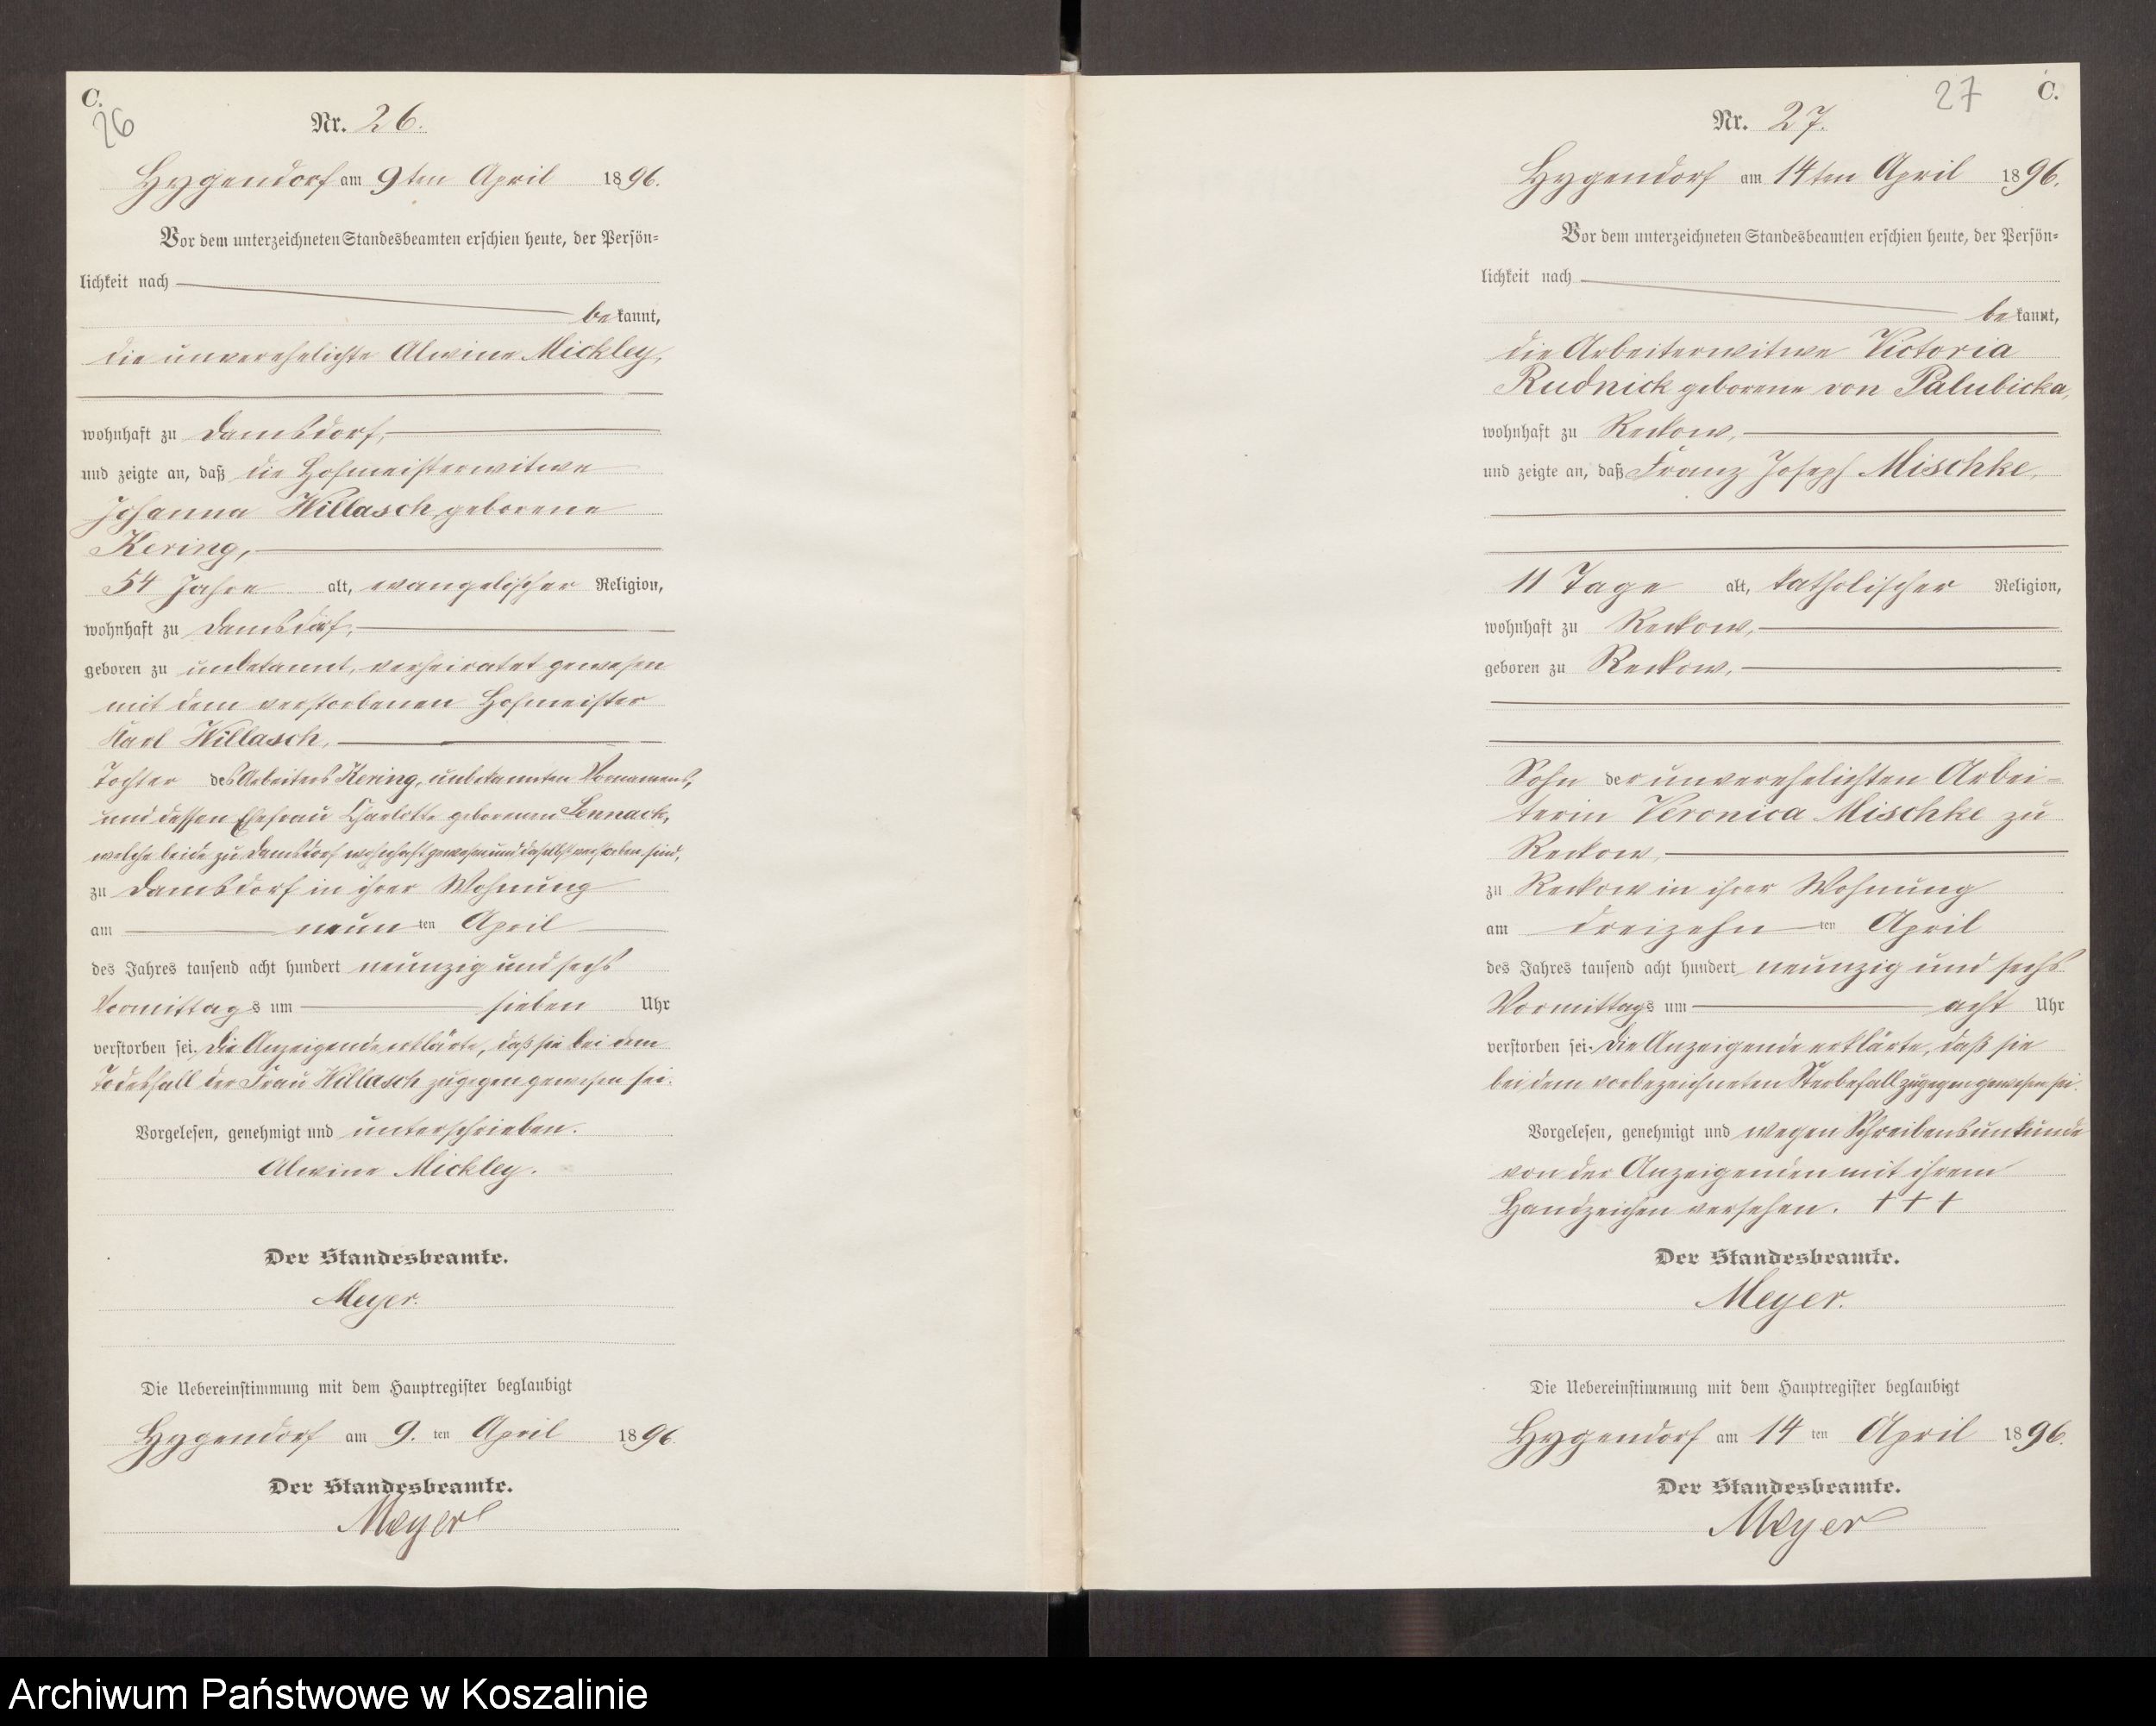 C.
26
Nr. 26.
Hygendorf am 9ten April 1896.
Vor dem unterzeichneten Standesbeamten erschien heute, der Persön=
lichkeit nach
bekannt,
die unverehelichte Alwine Mickley,
wohnhaft zu Damsdorf,
und zeigte an, daß die Hofmeisterwitwe
Johanna Willasch, geborene
Kering,
54 Jahre alt, evangelischer Religion,
wohnhaft zu Damsdorf,
geboren zu unbekannt, verheiratet gewesen
mit dem verstorbenen Hofmeister
Karl Willasch,
Tochter des Arbeiters Kering, unbekannten Vornamens,
und dessen Ehefrau Charlotte geborenen Lennack,
welche beide zu Damsdorf wohnhaft gewesen und daselbst verstorben sind,
zu Damsdorf in ihrer Wohnung
am neunten April
des Jahres tausend acht hundert neunzig und sechs
Vormittags um sieben Uhr
verstorben sei. Die Anzeigende erklärte, daß sie bei dem
Todesfall der Frau Willasch zugegen gewesen sei.
Vorgelesen, genehmigt und unterschrieben.
Alwine Mickley.
Der Standesbeamte.
Meyer.
Die Uebereinstimmung mit dem Hauptregister beglaubigt
Hygendorf am 9. ten April 1896.
Der Standesbeamte.
Meyer
27
C.
Nr. 27.
Hygendorf am 14ten April 1896.
Vor dem unterzeichneten Standesbeamten erschien heute, der Persön=
lichkeit nach
bekannt,
die Arbeiterwitwe Victoria
Rudnick geborene von Palubicka,
wohnhaft zu Reckow,
und zeigte an, daß Franz Joseph Mischke,
11 Tage alt, katholischer Religion,
wohnhaft zu Reckow,
geboren zu Reckow,
Sohn der unverehelichten Arbei=
terin Veronica Mischke zu
Reckow,
zu Reckow in ihrer Wohnung
am dreizehnten April
des Jahres tausend acht hundert neunzig und sechs
Vormittags um acht Uhr
verstorben sei. Die Anzeigende erklärte, daß sie
bei dem vorbezeichneten Sterbefall zugegen gewesen sei.
Vorgelesen, genehmigt und wegen Schreibensunkunde
von der Anzeigenden mit ihrem
Handzeichen versehen. + + +
Der Standesbeamte.
Meyer.
Die Uebereinstimmung mit dem Hauptregister beglaubigt
Hygendorf am 14 ten April 1896.
Der Standesbeamte.
Meyer
Archiwum Państwowe w Koszalinie